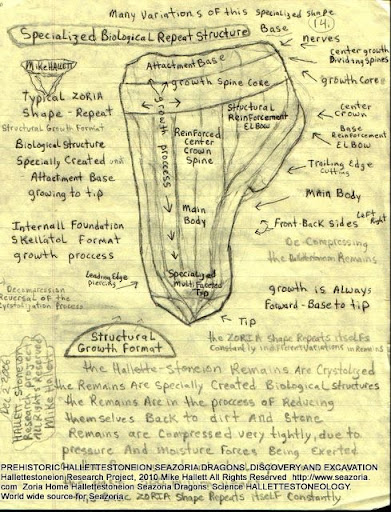 Many Variations of this specialized shape
(14.
Specialized Biological Repeat Structure
Base
nerves
Center growth
Dividing Spines
growth Core
Mike Hallett
Attachment Base
growth Spine Core
Typical ZORIA
Shape - Repeat
Structural Growth Format
Biological Structure
Specially Created
Attachment Base
growing to tip
growth process
Structural
Reinforcement
ELBow
Reinforced
Center
Crown
Spine
center
crown
Base
Reinforcement
ELBow
Trailing Edge
Cutting
Main Body
Main
Body
Left
Right
Front-Back sides
De-Compressing
the Remains
Internall Foundation
SKellatol Format
growth proccess
Decompression
Reversal of the
Leading Edge
piercing
Specialized
Multi Faceted
Tip
growth is Always
Forward-Base to tip
Tip
Structural
Growth Format
the ZORIA shape Repeats itselfs
Constantly indifferent variations in Remains
Dec 2-2006
HALLETT Stoneion
Research Project
All Right Reserved
Mike Hallett
the Hallette-Stoneion Remains Are Crystolized
the Remains Are Specially Created Biological structures
the Remains Are in the proccess of Reducing
themselves Back to dirt And Stone
Remains are Compressed very tightly, due to
pressure And Moisture Forces Being Exerted
PREHISTORIC HALLETTESTONEION SEAZORIA DRAGONS, DISCOVERY AND EXCAVATION
Hallettestoneion Research Project, 2010 Mike Hallett All Rights Reserved http://www.seazoria.
com Zoria Home Hallettestoneion Seazoria Dragons. Science HALLETTESTONEOLOGY.
World wide source for Seazoria
ZORIA Shape Repeats itself Constantly